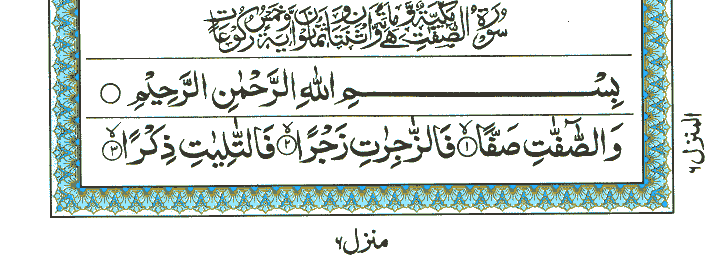 سُوْرَةُ الصّٰٓفّٰتِ مَكِّيَّةٌ وَّهِيَ مِائَةٌ وَّاثْنَتَانِ وَثَمَانُوْنَ اٰيَةً وَّخَمْسُ رُكُوْعَاتٍ
بِسْمِ اللهِ الرَّحْمٰنِ الرَّحِيْمِ ۝
وَالصّٰٓفّٰتِ صَفًّا ۝۱ فَالزّٰجِرٰتِ زَجْرًا ۝۲ فَالتّٰلِيٰتِ ذِكْرًا ۝۳
المنزل ۶
منزل ۶